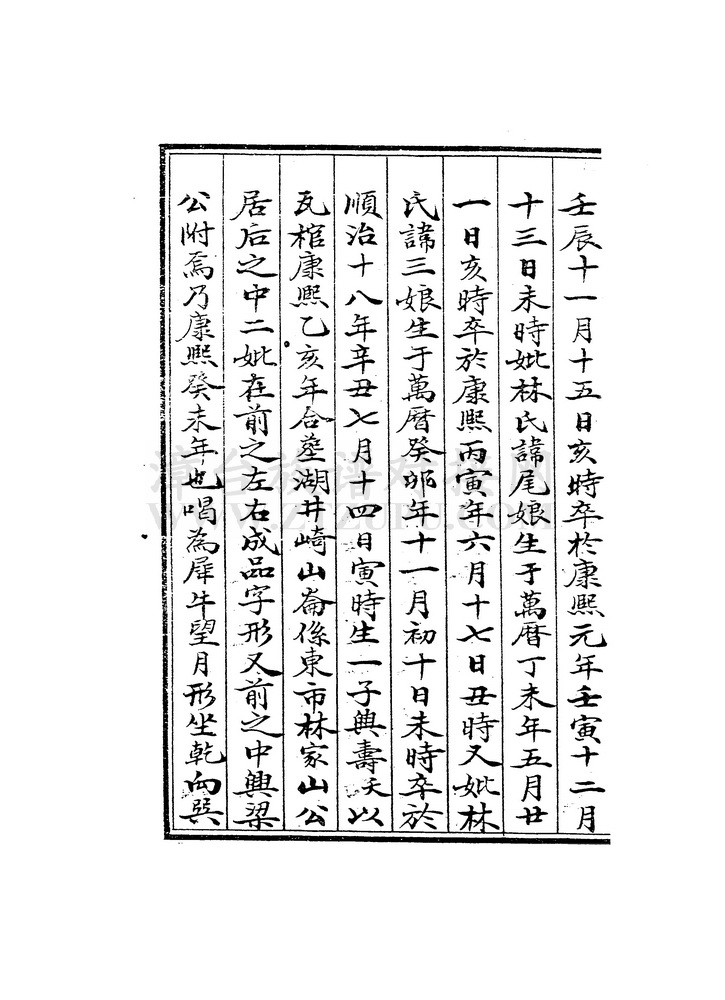 壬辰十一月十五日亥時卒於康熙元年壬寅十二月
十三日未時妣林氏諱尾娘生于萬曆丁未年五月廿
一日亥時卒於康熙丙寅年六月十七日丑時又妣林
氏諱三娘生于萬曆癸卯年十一月初十日未時卒於
順治十八年辛丑七月十四日寅時生一子興壽夭以
瓦棺康熙乙亥年合塟湖井崎山崙係東市林家山公
居后之中二妣在前之左右成品字形又前之中興梁
公附焉乃康熙癸未年也喝為犀牛望月形坐乾向巽
漳台族谱对接网
WWW.ZTZUPU.COM